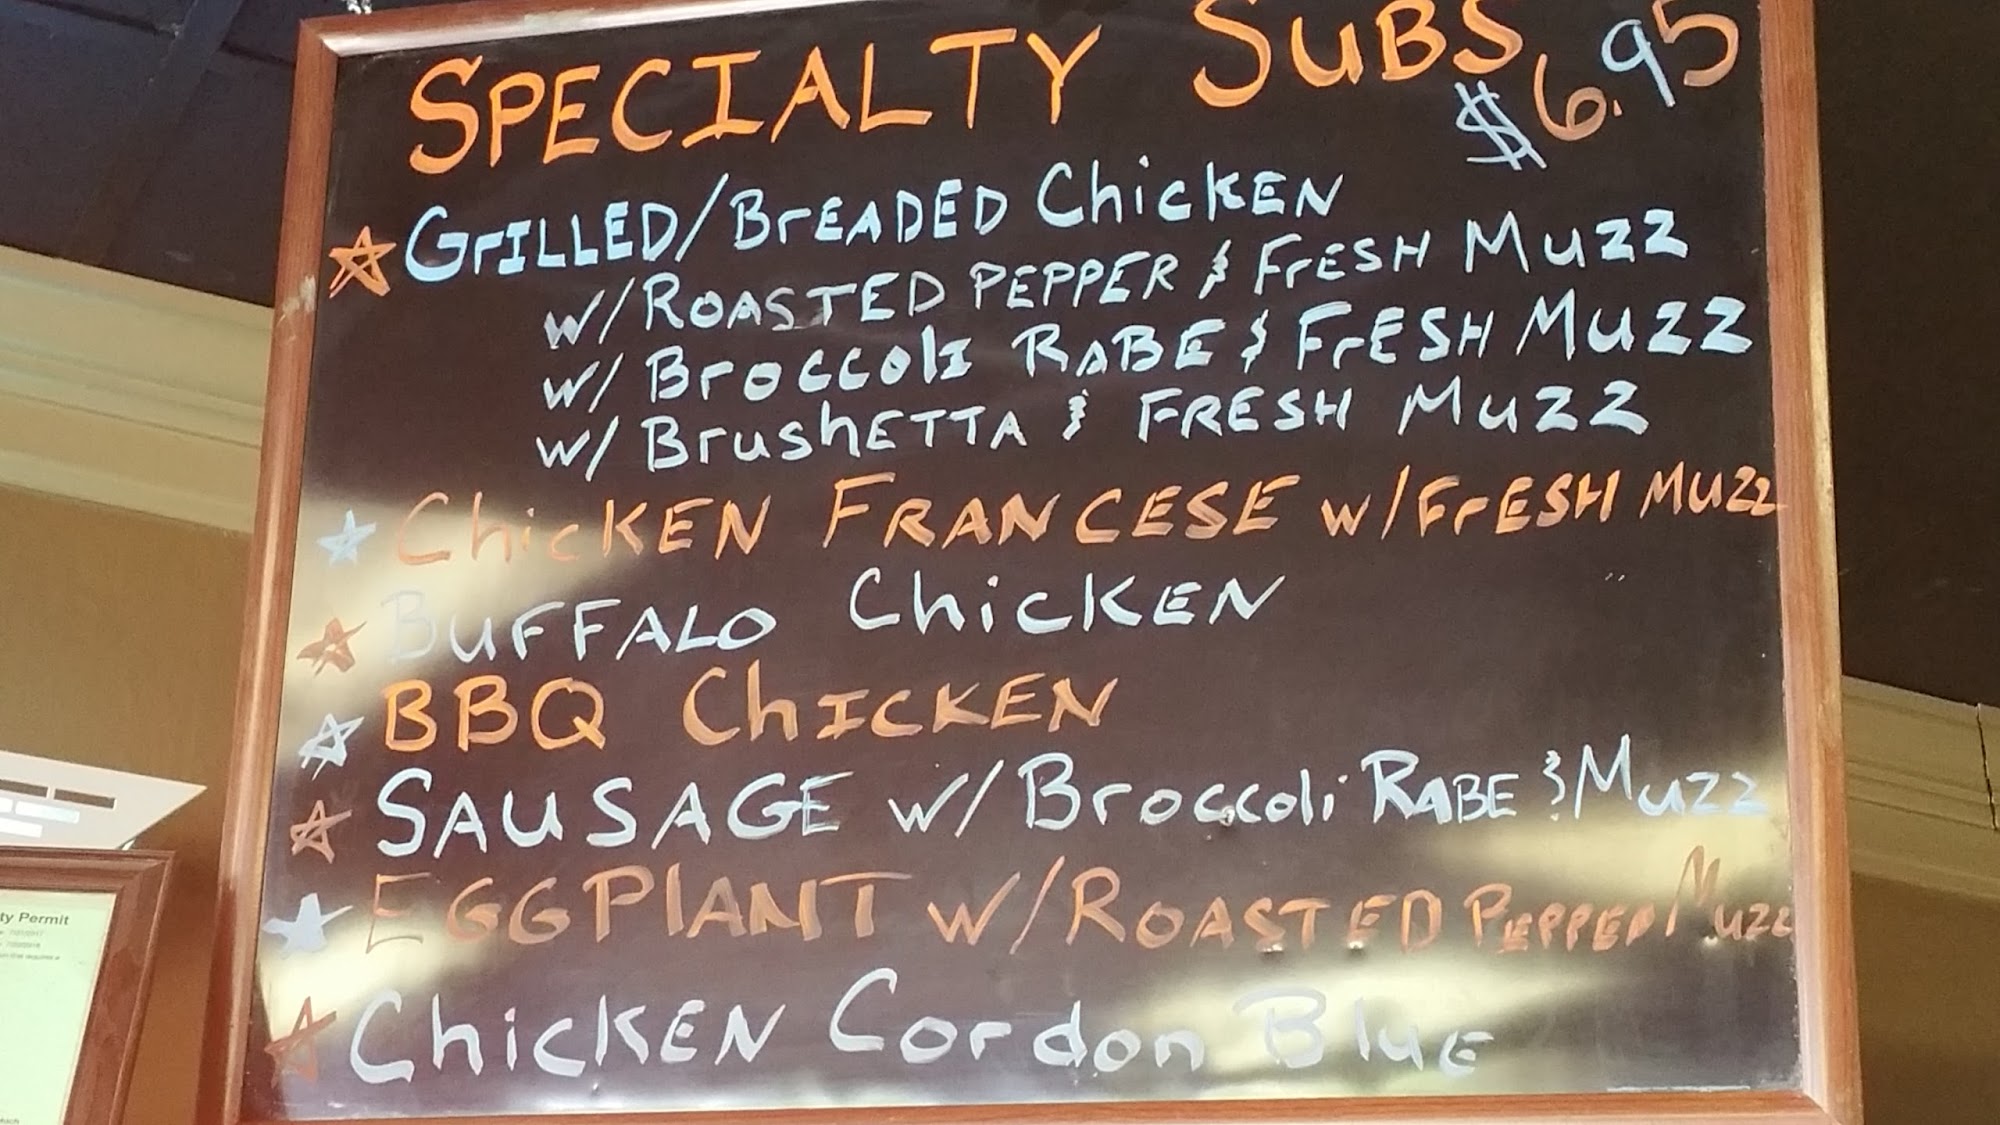 SPECIALTY SUBS $6.95
GrILLED/BrEADED ChicKEN
w/ROASTED PEPPER & FrESH Muzz
w/ Broccoli RABE & FrESH Muzz
w/ BrushETTA & FRESH Muzz
ChicKEN FRANCESE w/FrESH Muzz
BuFFALO ChicKEN
BBQ ChICKEN
SAuSAGE w/ Broccoli RABE & Muzz
EGGPlANT w/ROASTED PEPPER Muzz
ChicKEN Cordon BluE
ty Permit